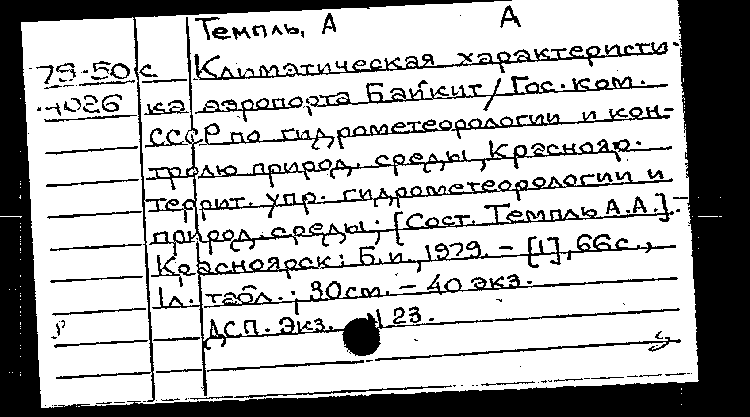 Темпль, А А
79-50 с. Климатическая характеристи-
-4026 ка аэропорта Байкит/Гос. ком.
СССР по гидрометеорологии и кон-
тролю природ. среды, Краснояр.
террит. упр. гидрометеорологии и
природ. среды; [Сост. Темпль А.А.].-
Красноярск: Б.и., 1979. - [1], 66 с.,
1л. табл.; 30 см. - 40 экз.
ДСП. Экз. N 23.